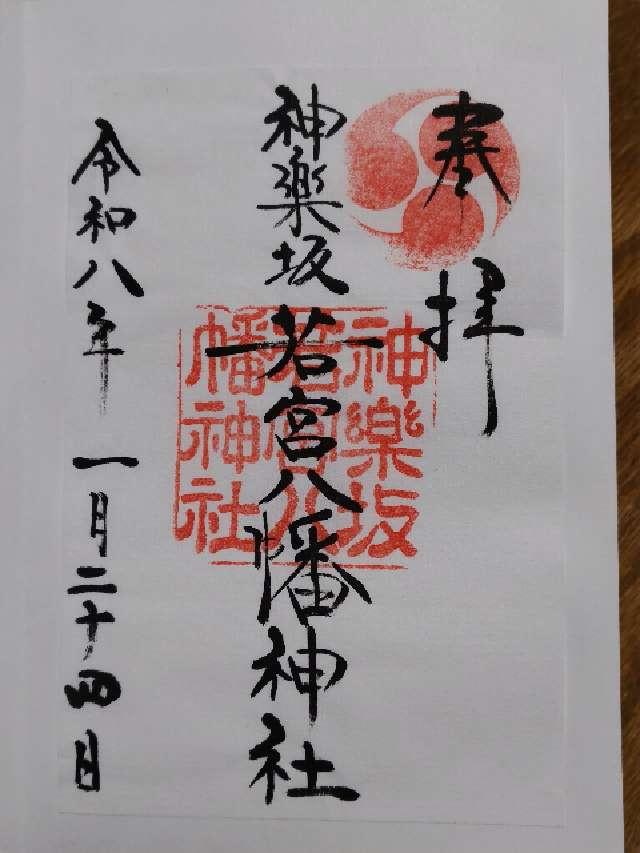 奉拝
神楽坂若宮八幡神社
神楽坂
若宮八
幡神社
令和八年一月二十四日